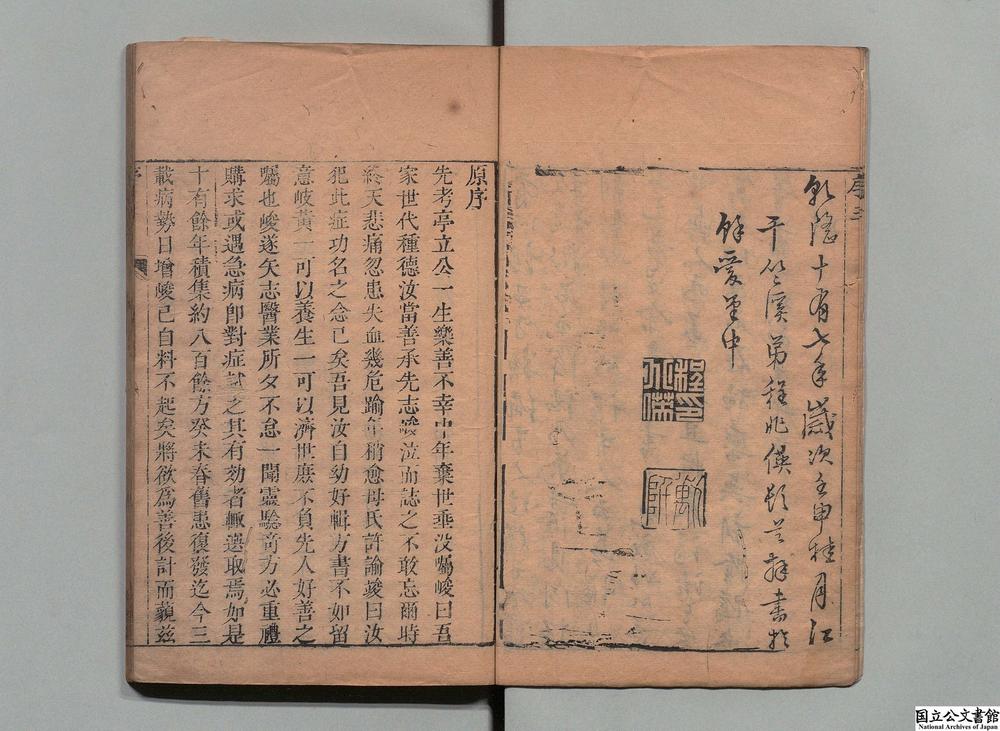 乾隆十有七年歲次壬申桂月江
干竺溪弟程兆僙頓首拜書於
餘愛堂中
原序
先考亭立公一生樂善不幸中年棄世垂没囑峻曰吾
家世代種德汝當善承先志峻泣而誌之不敢忘爾時
終天悲痛忽患失血幾厄踰年稍愈母氏許諭峻曰汝
犯此症功名之念已矣吾見汝自幼好輯方書不如留
意岐黃一可以養生一可以濟世庶不負先人好善之
囑也峻遂矢志醫業所夕不怠一聞靈騐竒方必重禮
購求或遇急病卽對症試之其有効者輒選取焉如是
十有餘年積集約八百餘方癸未春舊患復發迄今三
載病勢日增峻已自料不起矣將欲爲善後計而藐兹
国立公文書館
National Archives of Japan